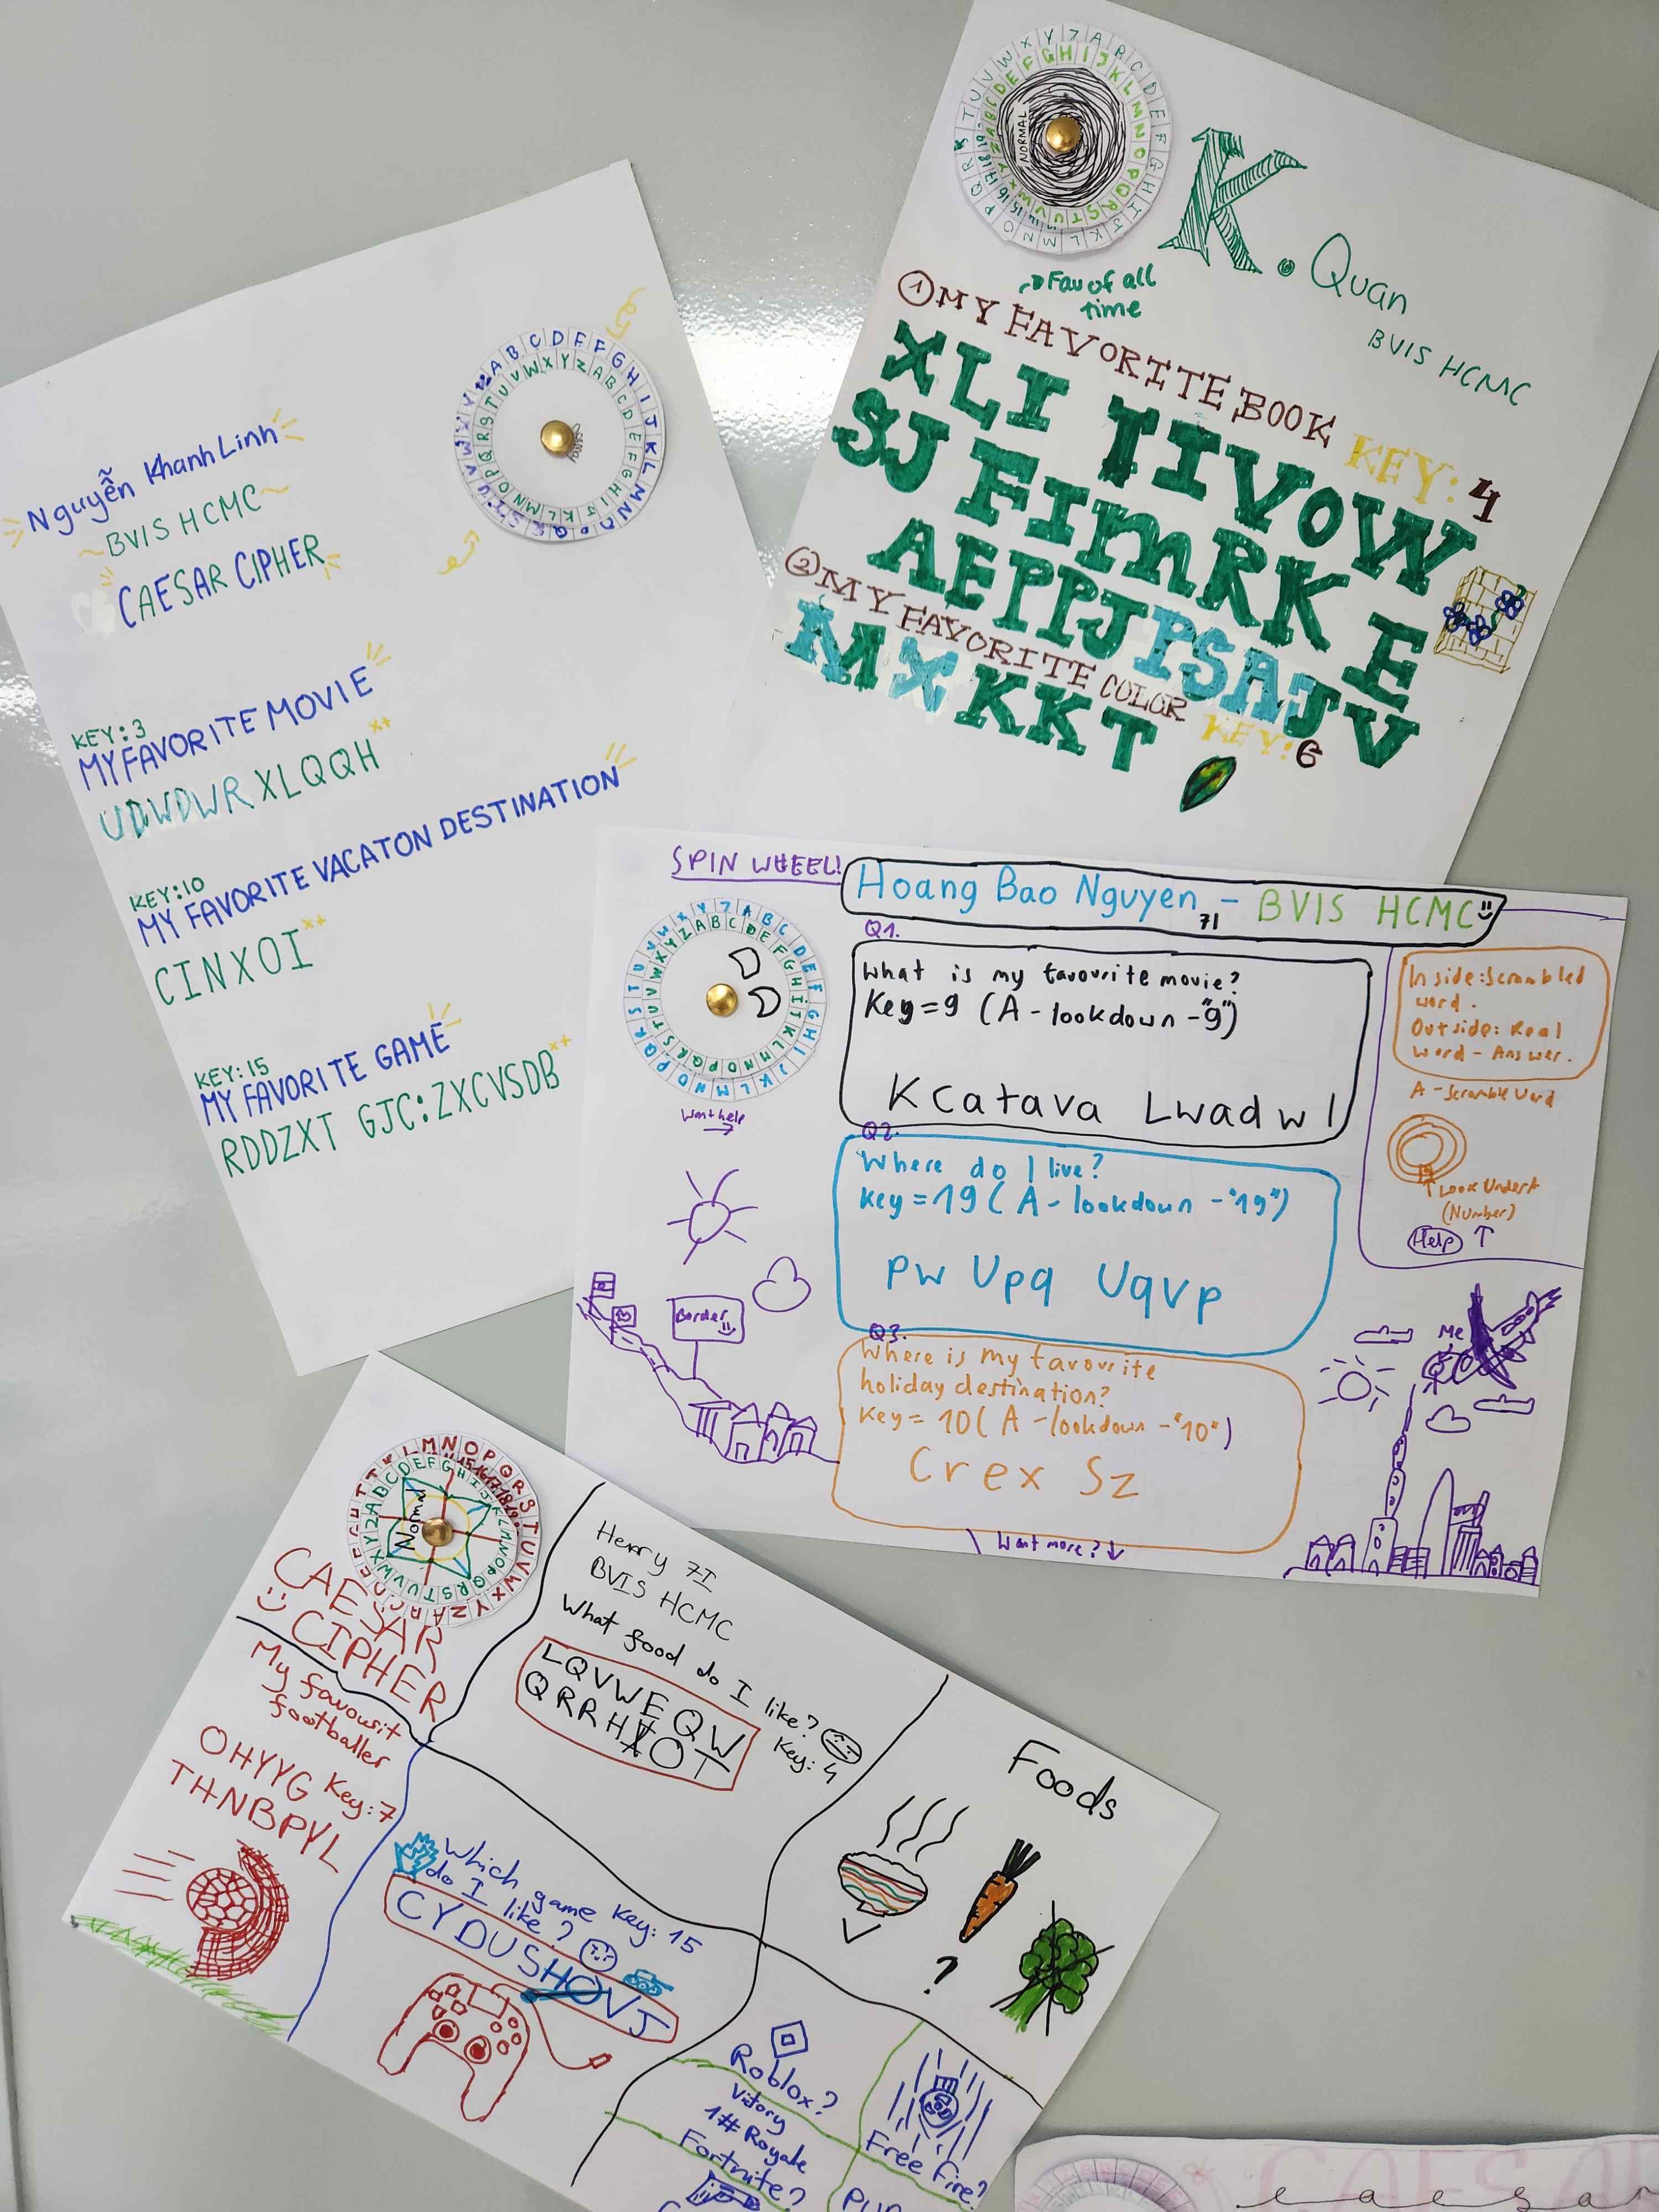 K. Quan
BVIS HCMC
Fav of all
time
① MY FAVORITE BOOK KEY: 4
XLI TIVOW
SJ FIMRK E
AEPPJPSAIV
② MY FAVORITE COLOR KEY: 6
MXKKT
Nguyễn Khanh Linh
~BVIS HCMC~
CAESAR CIPHER
KEY: 3
MY FAVORITE MOVIE
UDWDWR XLQQH
KEY: 10
MY FAVORITE VACATON DESTINATION
CINXOI
KEY: 15
MY FAVORITE GAME
RDDZXT GJC: ZXCVSDB
SPIN WHEEL!
Hoang Bao Nguyen - BVIS HCMC
7I
Want help
Q1.
What is my favourite movie?
Key=9 (A - lookdown - "9")
Kcatava Lwadwl
Q2.
Where do I live?
Key=19 (A - lookdown - "19")
Pw Upq Uqvp
Q3.
Where is my favourite
holiday destination?
Key= 10 (A - lookdown - "10")
Crex Sz
Want more?
Inside: Scrambled
word.
Outside: Real
word - Answer.
A - Scramble Word
Look Under
(Number)
Help
Border
Me
NORMAL
Normal
CAESAR
CIPHER
My favousit
footballer
OHYYG Key: 7
THNBPYL
Henry 7I
BVIS HCMC
What food do I like?
Key: 4
LQVWEQW
QRRHOT
Foods
?
Which game Key: 15
do I like?
CYDUSHOVJ
Roblox?
Vitory
1# Royale
Fortnite?
Free Fire?
CAESA
caesar